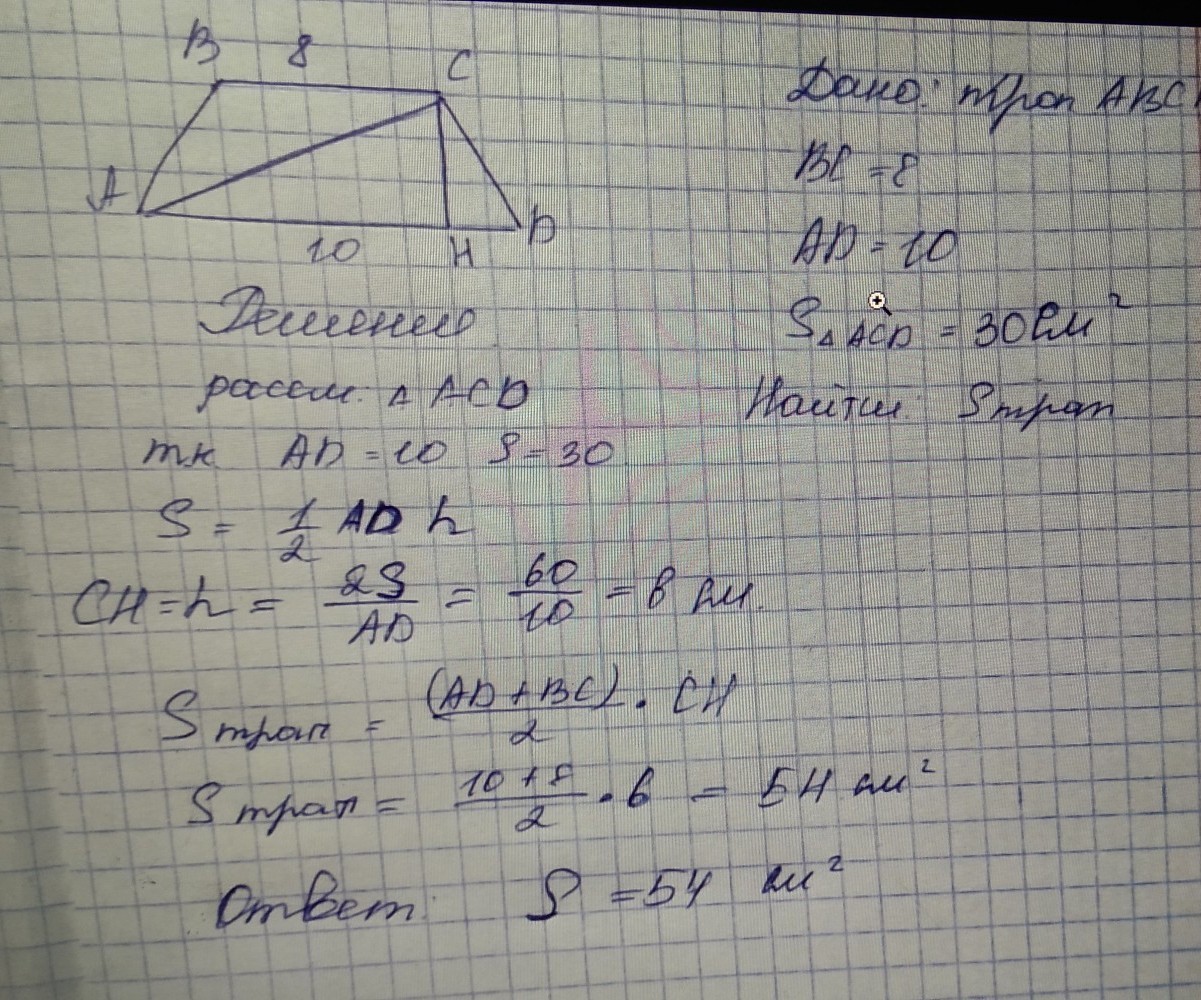 B 8 C
A 10 H D
Дано: трап ABC
BC = 8
AD = 10
S△ACD = 30см²
Найти: Sтрап
Решение
рассм. △ ACD
тк AD = 10 S = 30
S = 1/2 AD h
CH = h = 2S/AD = 60/10 = 6 см.
Sтрап = (AD + BC)/2 · CH
Sтрап = 10 + 8/2 · 6 = 54 см²
Ответ: S = 54 см²